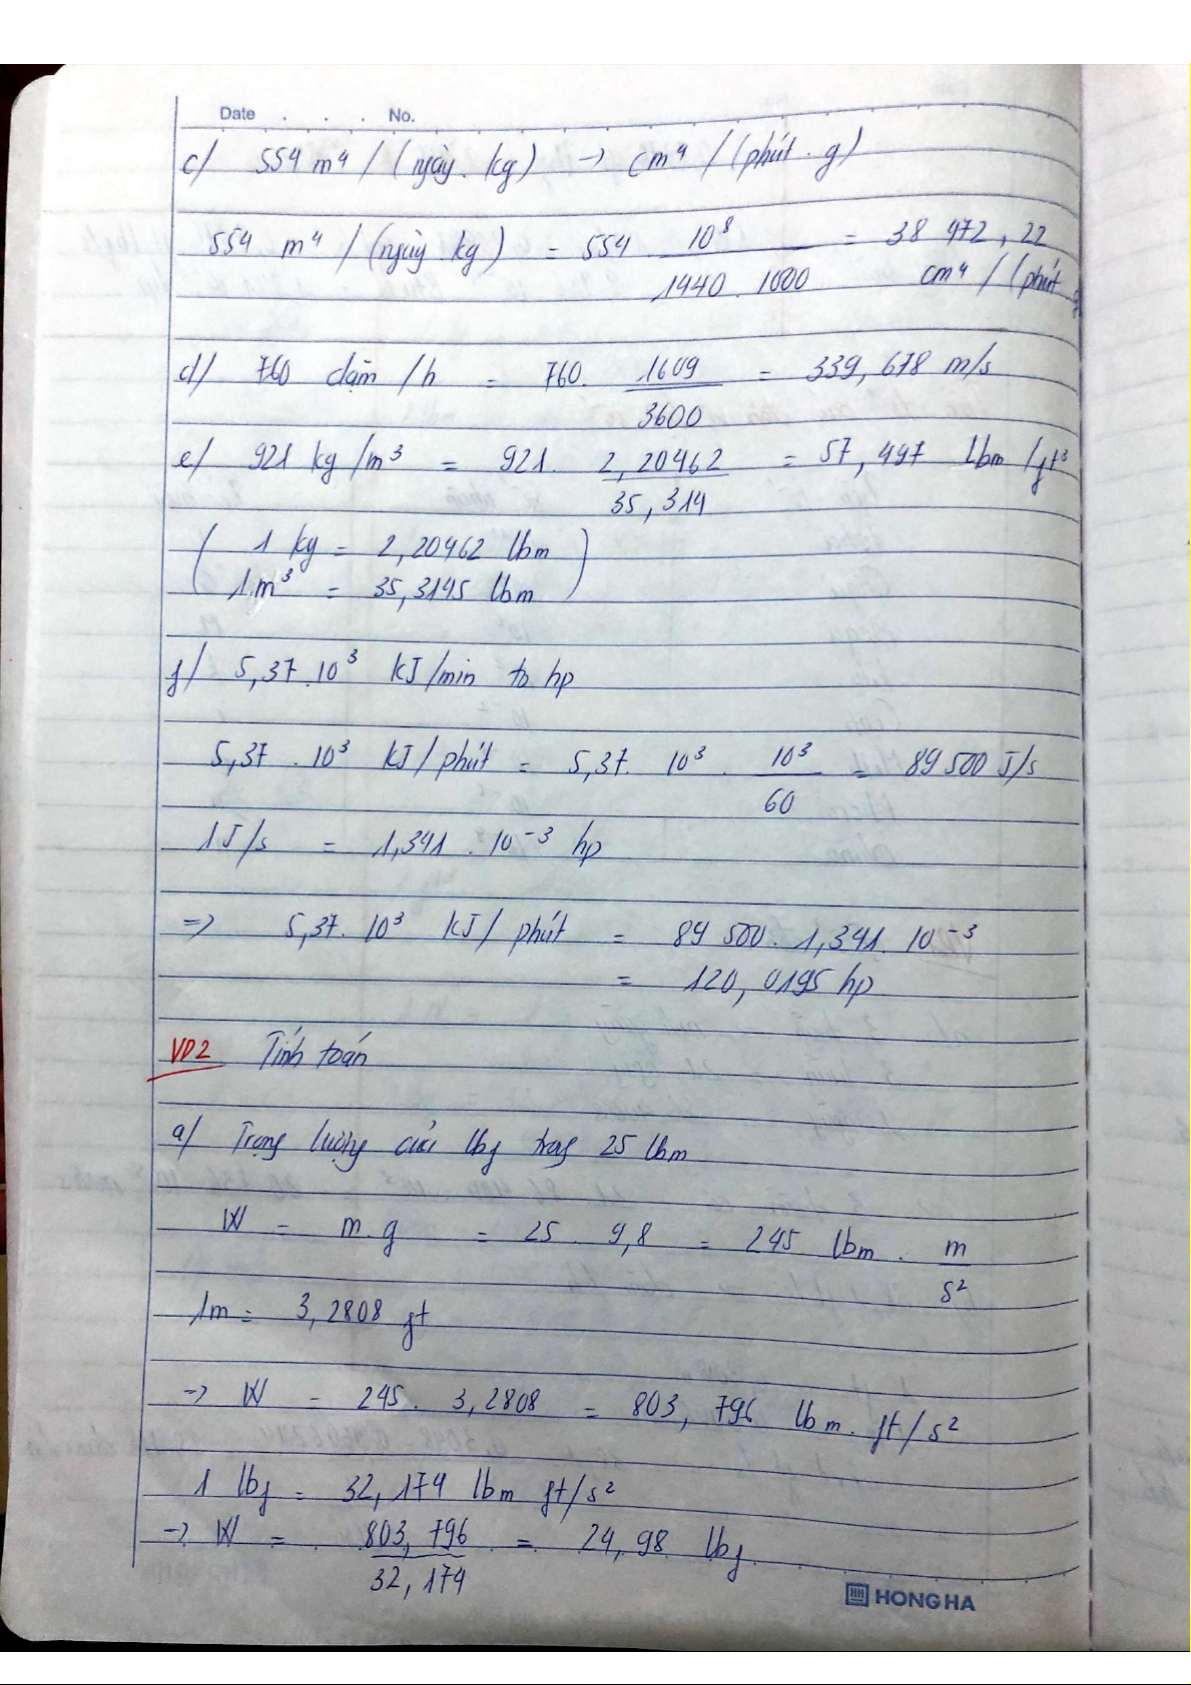 Date . . . No.
c/ 554 m⁴ / (ngày . kg) → cm⁴ / (phút . g)
554 m⁴ / (ngày kg) = 554 . 10⁸ / 1440 . 1000 = 38 472,22 cm⁴ / (phút . g)
d/ 760 dặm /h = 760. 1609 / 3600 = 339,678 m/s
e/ 921 kg/m³ = 921. 2,20462 / 35,314 = 57,497 lbm /ft³
( 1 kg = 2,20462 lbm
1m³ = 35,3145 lbm )
f/ 5,37.10³ kJ/min to hp
5,37 . 10³ kJ/phút = 5,37. 10³ . 10³ / 60 = 89500 J/s
1J/s = 1,341 . 10⁻³ hp
=> 5,37. 10³ kJ/ phút = 89 500. 1,341. 10⁻³
= 120,0195 hp
VD2 Tính toán
a/ Trọng lượng của lbf trong 25 lbm
W = m.g = 25 . 9,8 = 245 lbm . m / s²
1m = 3,2808 ft
→ W = 245. 3,2808 = 803,796 lbm. ft/s²
1 lbf = 32,174 lbm ft/s²
→ W = 803,796 / 32,174 = 24,98 lbf.
HH HONG HA